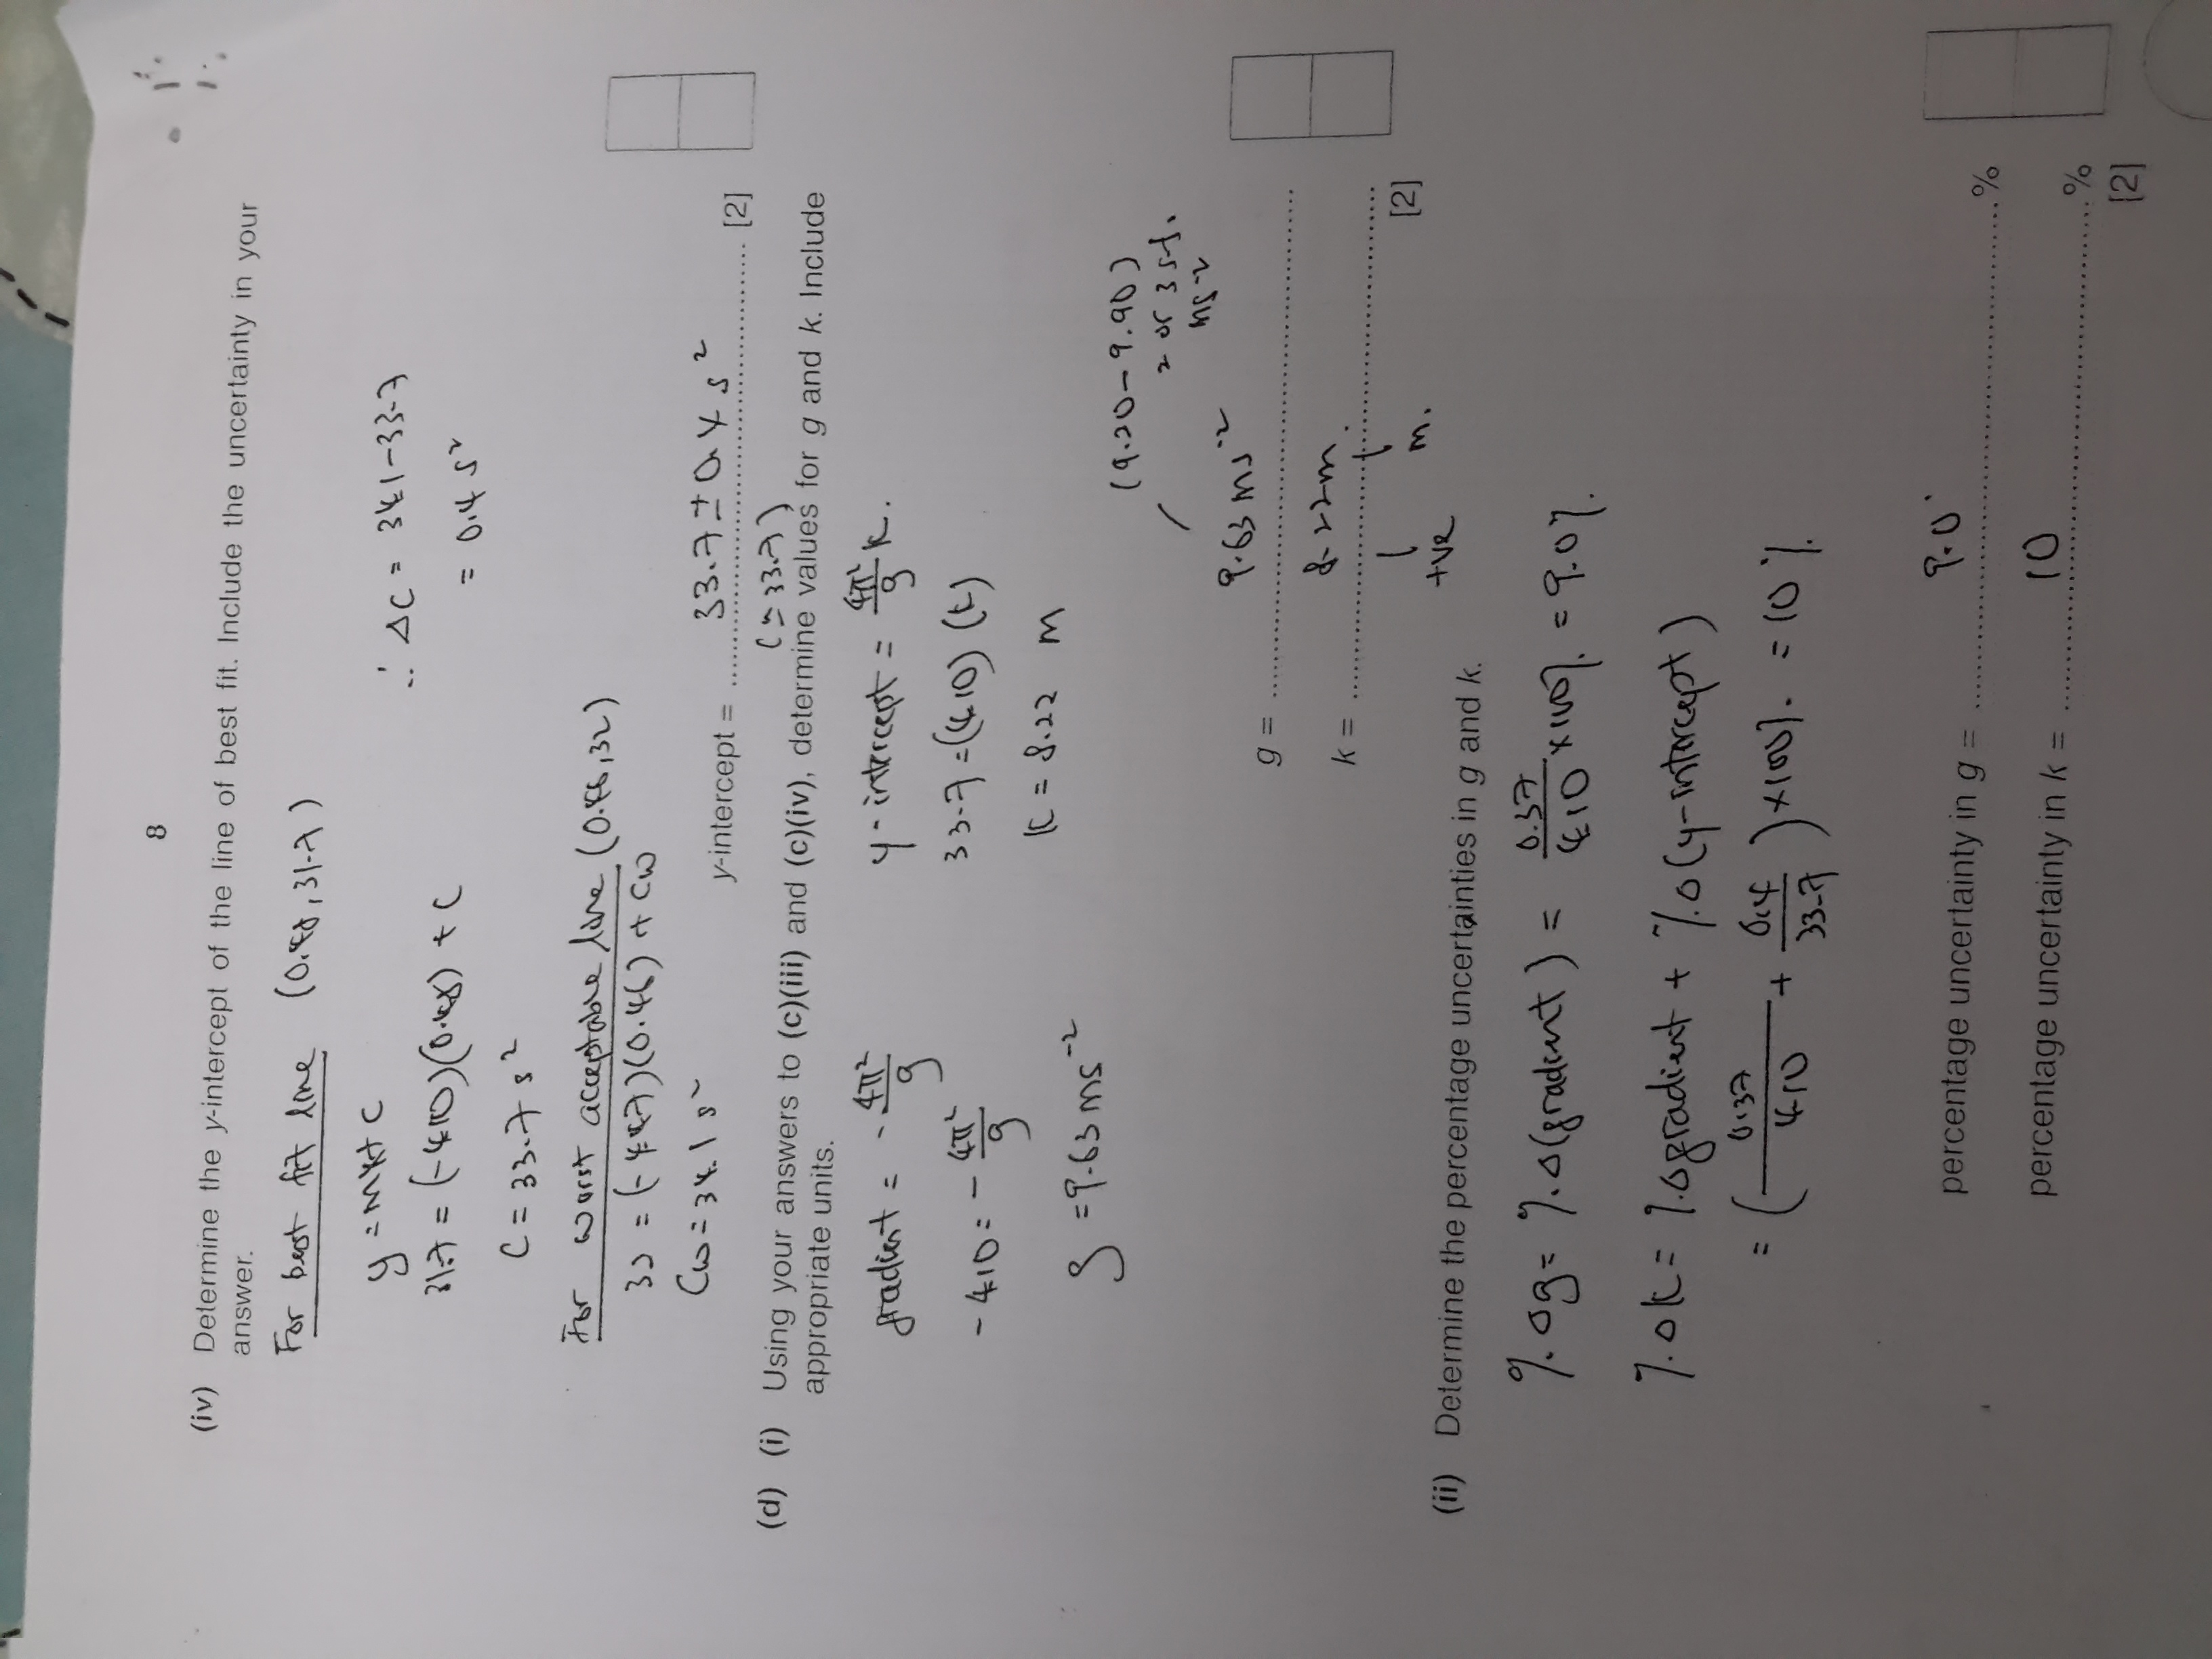 8
(iv) Determine the y-intercept of the line of best fit. Include the uncertainty in your
answer.
For best fit line (0.48, 31.7)
y = mx + c
31.7 = (-4.10)(0.48) + C
C = 33.7 s²
∴ ΔC = 34.1 - 33.7
= 0.4 s²
For worst acceptable line (0.46, 32)
32 = (-4.47)(0.46) + Cw
Cw = 34.1 s²
y-intercept = 33.7 ± 0.4 s² [2]
(≃ 33.7)
(d) (i) Using your answers to (c)(iii) and (c)(iv), determine values for g and k. Include
appropriate units.
gradient = - 4π²/g
-4.10 = - 4π²/g
g = 9.63 ms⁻²
y-intercept = 4π²/g k.
33.7 = (4.10) (k)
K = 8.22 m
(9.20 - 9.90)
2 or 3 s.f.
ms-2
g = 9.63 ms⁻²
k = 8.22m.
+ve
m.
[2]
(ii) Determine the percentage uncertainties in g and k.
%Δg = %Δ(gradient) = 0.37/4.10 × 100% = 9.0%.
%Δk = %Δgradient + %Δ(y-intercept)
= (0.37/4.10 + 0.4/33.7) × 100%. = 10%
percentage uncertainty in g = 9.0 %
percentage uncertainty in k = 10 %
[2]